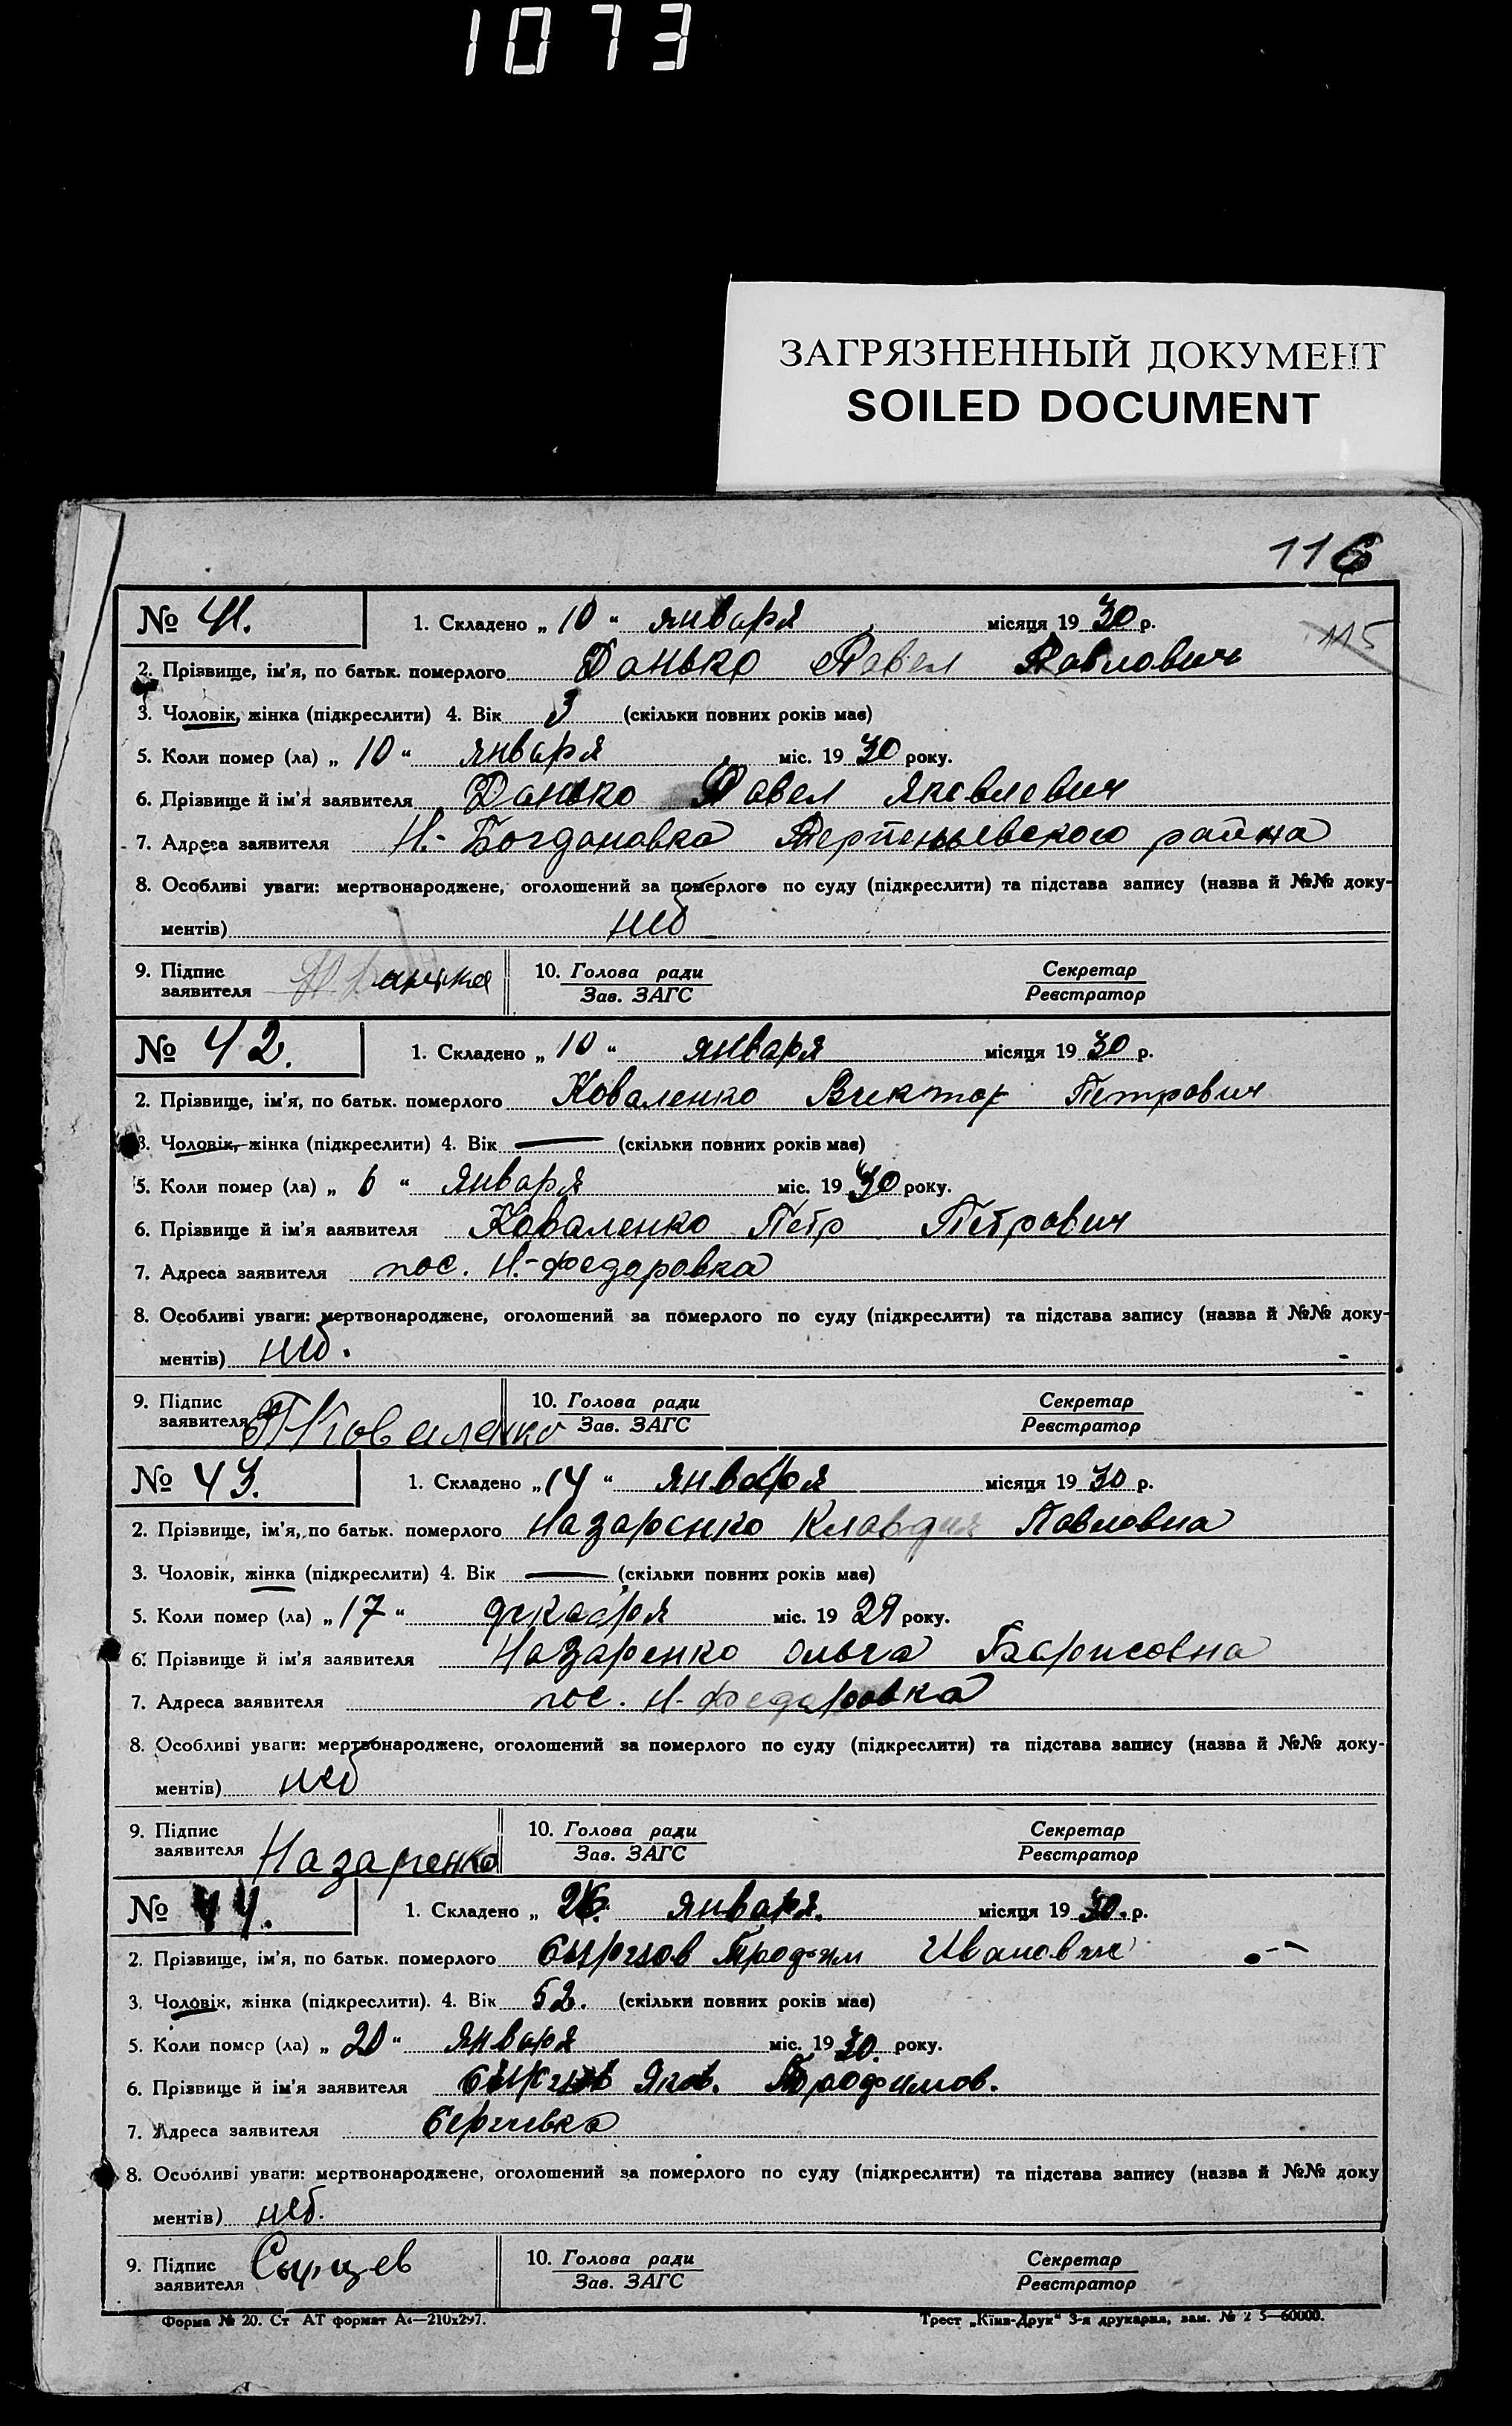 1073
ЗАГРЯЗНЕННЫЙ ДОКУМЕНТ
SOILED DOCUMENT
116
115
№ 41. 1. Складено „ 10 “ января місяця 19 30 р.
2. Прізвище, ім’я, по батьк. померлого Данько Павел Павлович
3. Чоловік, жінка (підкреслити) 4. Вік 3 (скільки повних років має)
5. Коли помер (ла) „ 10 “ января міс. 19 30 року.
6. Прізвище й ім’я заявителя Данько Павел Яковлевич
7. Адреса заявителя Н.-Богдановка Терпеньевского района
8. Особливі уваги: мертвонароджене, оголошений за померлого по суду (підкреслити) та підстава запису (назва й №№ доку-
ментів)
9. Підпис 10. Голова ради Секретар
заявителя Зав. ЗАГС Реєстратор
№ 42. 1. Складено „ 10 “ января місяця 19 30 р.
2. Прізвище, ім’я, по батьк. померлого Коваленко Виктор Петрович
3. Чоловік, жінка (підкреслити) 4. Вік — (скільки повних років має)
5. Коли помер (ла) „ 6 “ января міс. 19 30 року.
6. Прізвище й ім’я заявителя Коваленко Петр Петрович
7. Адреса заявителя пос. Н.-Федоровка
8. Особливі уваги: мертвонароджене, оголошений за померлого по суду (підкреслити) та підстава запису (назва й №№ доку-
ментів)
9. Підпис 10. Голова ради Секретар
заявителя ПКоваленко Зав. ЗАГС Реєстратор
№ 43. 1. Складено „ 14 “ января місяця 19 30 р.
2. Прізвище, ім’я, по батьк. померлого Назаренко Клавдия Павловна
3. Чоловік, жінка (підкреслити) 4. Вік — (скільки повних років має)
5. Коли помер (ла) „ 17 “ декабря міс. 19 29 року.
6. Прізвище й ім’я заявителя Назаренко Ольга Борисовна
7. Адреса заявителя пос. Н-Федоровка
8. Особливі уваги: мертвонароджене, оголошений за померлого по суду (підкреслити) та підстава запису (назва й №№ доку-
ментів)
9. Підпис 10. Голова ради Секретар
заявителя Назаренко Зав. ЗАГС Реєстратор
№ 44. 1. Складено „ 26. января. місяця 19 30. р.
2. Прізвище, ім’я, по батьк. померлого Сырцов Трофим Иванович
3. Чоловік, жінка (підкреслити). 4. Вік 52. (скільки повних років має)
5. Коли помер (ла) „ 20 “ января міс. 19 30. року.
6. Прізвище й ім’я заявителя Сырцов Яков. Трофимов.
7. Адреса заявителя Сергиевка
8. Особливі уваги: мертвонароджене, оголошений за померлого по суду (підкреслити) та підстава запису (назва й №№ доку
ментів)
9. Підпис Сырцев 10. Голова ради Секретар
заявителя Зав. ЗАГС Реєстратор
Форма № 20. Ст АТ формат А4—210х297. Трест „Київ-Друк“ 3-я друкарня, зам. №